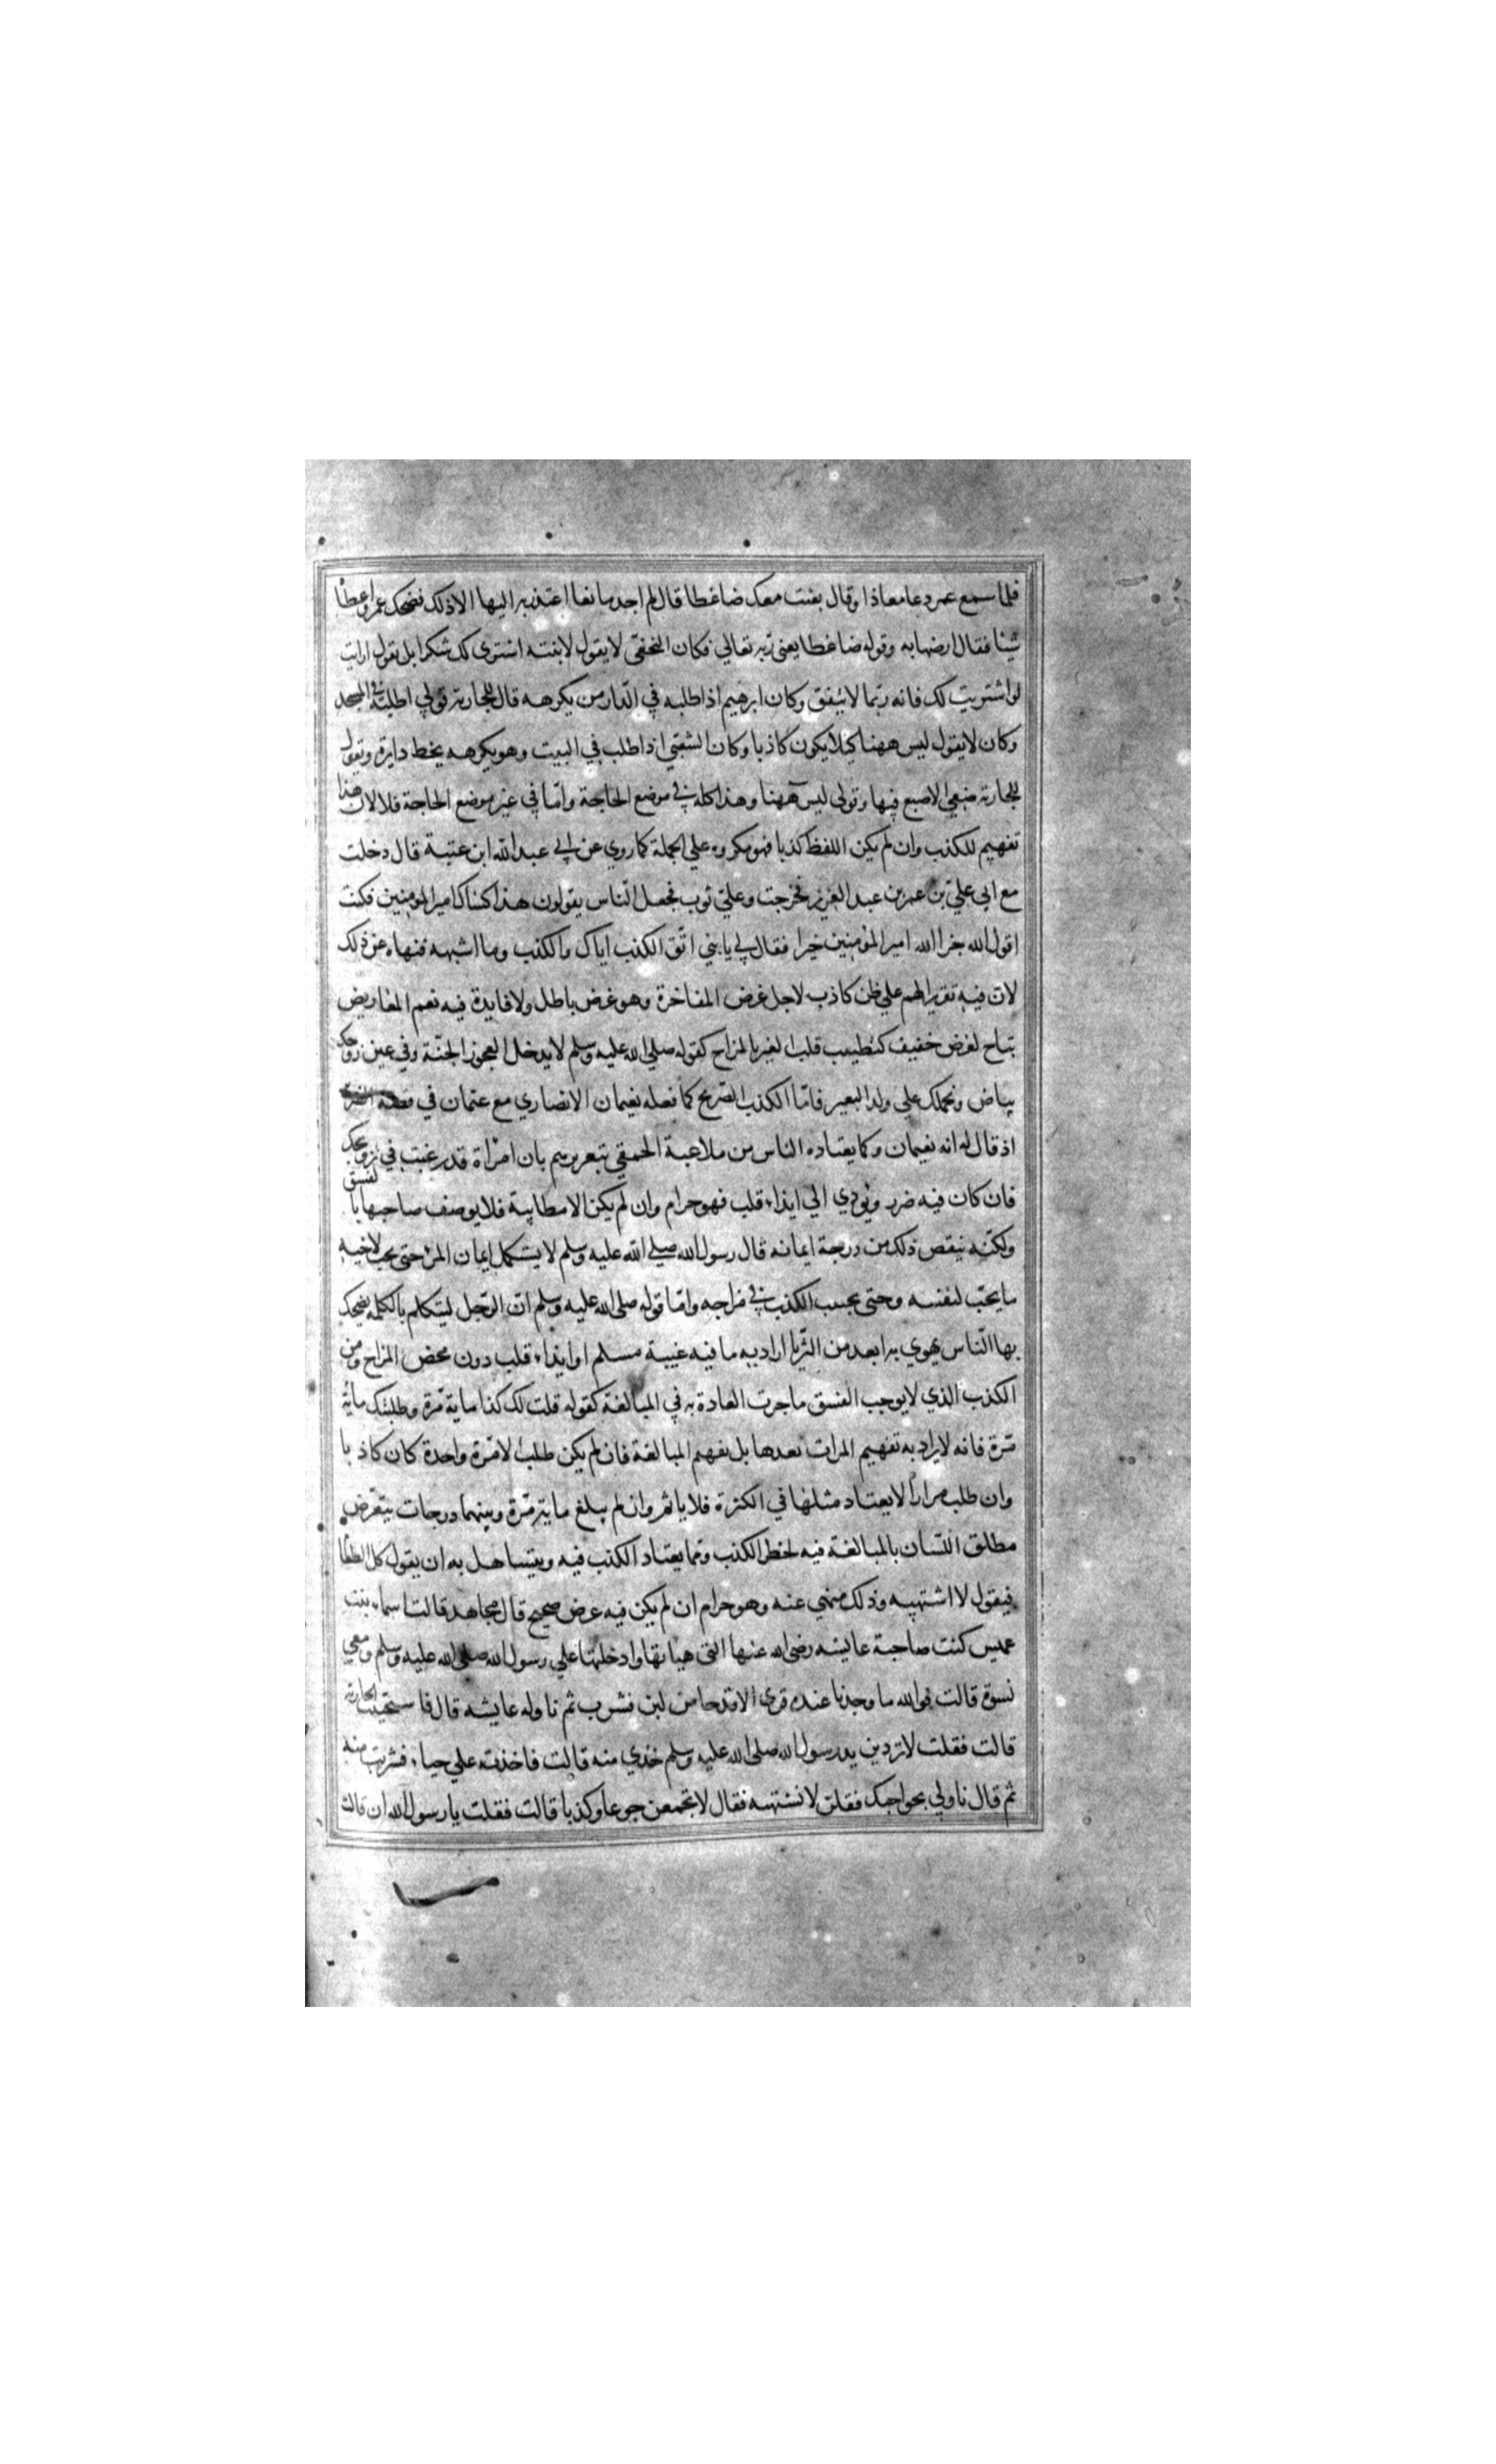 فلما سمع عمر دعا معاذا وقال بعثت معك ضاغطا قال لم اجد ما نعا اعتذر به اليها الا ذلك فضحك عمر واعطا
شيئا فقال ارضها به وقوله ضاغطا يعنى به ربه تعالي فكان النخعي لا يقول لابنته اشترى لك شكرا بل يقول ارايت
لو اشتريت لك فانه ربما لا يتفق وكان ابرهيم اذا طلبه في الدار من يكرهه قال للجارية قولي اطلبه في المسجد
وكان لا يقول ليس ههنا كيلا يكون كاذبا وكان الشعبي اذا طلب في البيت وهو يكرهه يخط دايرة ويقول
للجارية ضعي الاصبع فيها وقولى ليس ههنا وهذا كله في موضع الحاجة واما في غير موضع الحاجة فلا لان هذا
تفهيم للكذب وان لم يكن اللفظ كذبا فهو مكروه علي الجملة كما روي عن ابي عبد الله ابن عتبة قال دخلت
مع ابي علي بن عمر بن عبد العزيز فخرجت وعلي ثوب فجعل الناس يقولون هذا كساك امير المومنين فكنت
اقول الله جزا الله امير المؤمنين خيرا فقال لي يا بني اتق الكذب اياك والكذب وما اشبهه فنهاه عن ذلك
لان فيه تقريرا لهم علي ظن كاذب لاجل غرض المفاخرة وهو غرض باطل ولا فايدة فيه نعم المعاريض
تباح لغرض خفيف كتطييب قلب الغير بالمزاح كقوله صلي الله عليه وسلم لا يدخل العجوز الجنة وفي عين زوجك
بياض ونحملك علي ولد البعير فاما الكذب الصريح كما فعله نعيمان الانصاري مع عثمان في قصة الضرير
اذ قال له انه نعيمان وكما يعتاده الناس من ملاعبة الحمقي بتغريرهم بان امراة قد رغبت في تزويجك
فان كان فيه ضرر ويؤدي الي ايذاء قلب فهو حرام وان لم يكن الا مطايبة فلا يوصف صاحبها بالفسق
ولكنه ينقص ذلك من درجة ايمانه قال رسول الله صلي الله عليه وسلم لا يستكمل ايمان المرء حتى يحب لاخيه
ما يحب لنفسه وحتى يجتنب الكذب في مزاحه واما قوله صلى الله عليه وسلم ان الرجل ليتكلم بالكلمه يضحك
بها الناس يهوي بها ابعد من الثريا اراد به ما فيه غيبة مسلم او ايذاء قلب دون محض المزاح ومن
الكذب الذي لا يوجب الفسق ما جرت العادة به في المبالغة كقوله قلت لك كذا ماية مرة وطلبتك ماية
مرة فانه لا يراد به تفهيم المرات بعدها بل تفهيم المبالغة فان لم يكن طلب الا مرة واحدة كان كاذبا
وان طلب مرارا لا يعتاد مثلها في الكثرة فلا ياثم وان لم يبلغ ماية مرة وبينهما درجات يتعرض
مطلق اللسان بالمبالغة فيه لخطر الكذب ومما يعتاد الكذب فيه ويتساهل به ان يقول كل الطعام
فيقول لا اشتهيه وذلك منهي عنه وهو حرام ان لم يكن فيه غرض صحيح قال مجاهد قالت اسماء بنت
عميس كنت صاحبة عايشه رضى الله عنها التى هياتها وادخلتها علي رسول الله صلى الله عليه وسلم ومعي
نسوة قالت فوالله ما وجدنا عنده قرى الا قدحا من لبن فشرب ثم ناوله عايشه قال فاستحيت الجارية
قالت فقلت لا تردين يد رسول الله صلى الله عليه وسلم خذي منه قالت فاخذته علي حياء فشربت منه
ثم قال ناولي صواحبك فقلن لا نشتهيه فقال لا تجمعن جوعا وكذبا قالت فقلت يا رسول الله ان قالت